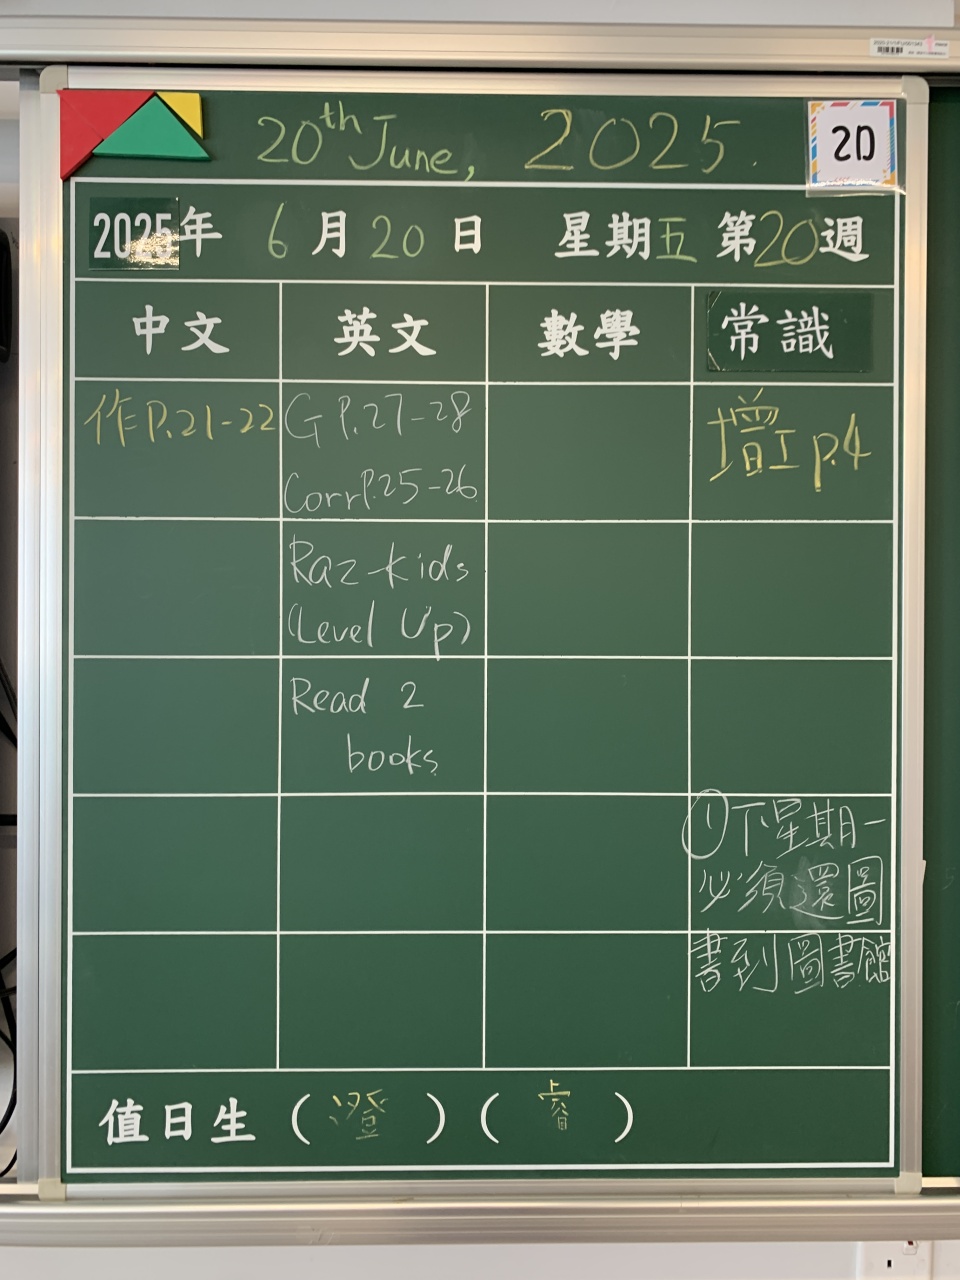 20th June, 2025.
20
2025年 6月20日 星期五 第20週
中文 英文 數學 常識
作P.21-22
G P.27-28
Corr P.25-26
Raz-kids
(Level Up)
Read 2
books
增工 p.4
①下星期一
必須還圖
書到圖書館
值日生 (澄) (睿)